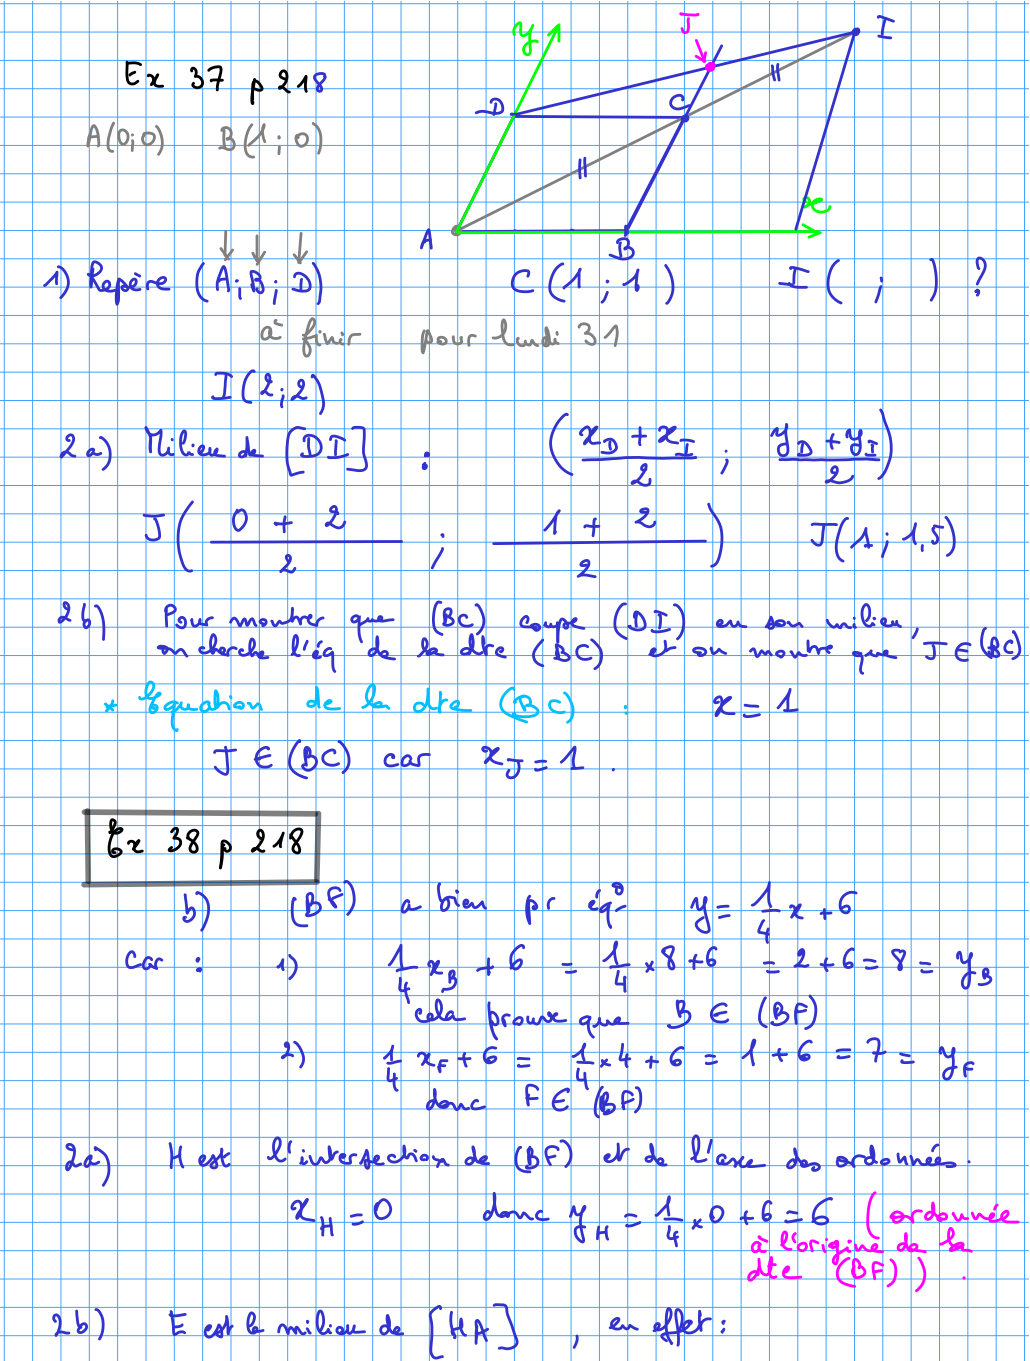 Ex 37 p 218
A(0;0) B(1;0)
y
D
J
I
C
A
B
x
1) Repère (A; B; D) C(1; 1) I( ; ) ?
à finir pour lundi 31
I(2;2)
2a) Milieu de [DI] : ((x_D + x_I)/2 ; (y_D + y_I)/2)
J((0 + 2)/2 ; (1 + 2)/2) J(1; 1,5)
2b) Pour montrer que (BC) coupe (DI) en son milieu,
on cherche l'éq de la dte (BC) et on montre que J ∈ (BC)
* Equation de la dte (BC) : x = 1
J ∈ (BC) car x_J = 1 .
Ex 38 p 218
b) (BF) a bien pr éq° y = 1/4 x + 6
car : 1) 1/4 x_B + 6 = 1/4 × 8 + 6 = 2 + 6 = 8 = y_B
cela prouve que B ∈ (BF)
2) 1/4 x_F + 6 = 1/4 × 4 + 6 = 1 + 6 = 7 = y_F
donc F ∈ (BF)
2a) H est l'intersection de (BF) et de l'axe des ordonnées.
x_H = 0 donc y_H = 1/4 × 0 + 6 = 6 (ordonnée
à l'origine de la
dte (BF)) .
2b) E est le milieu de [HA] , en effet :